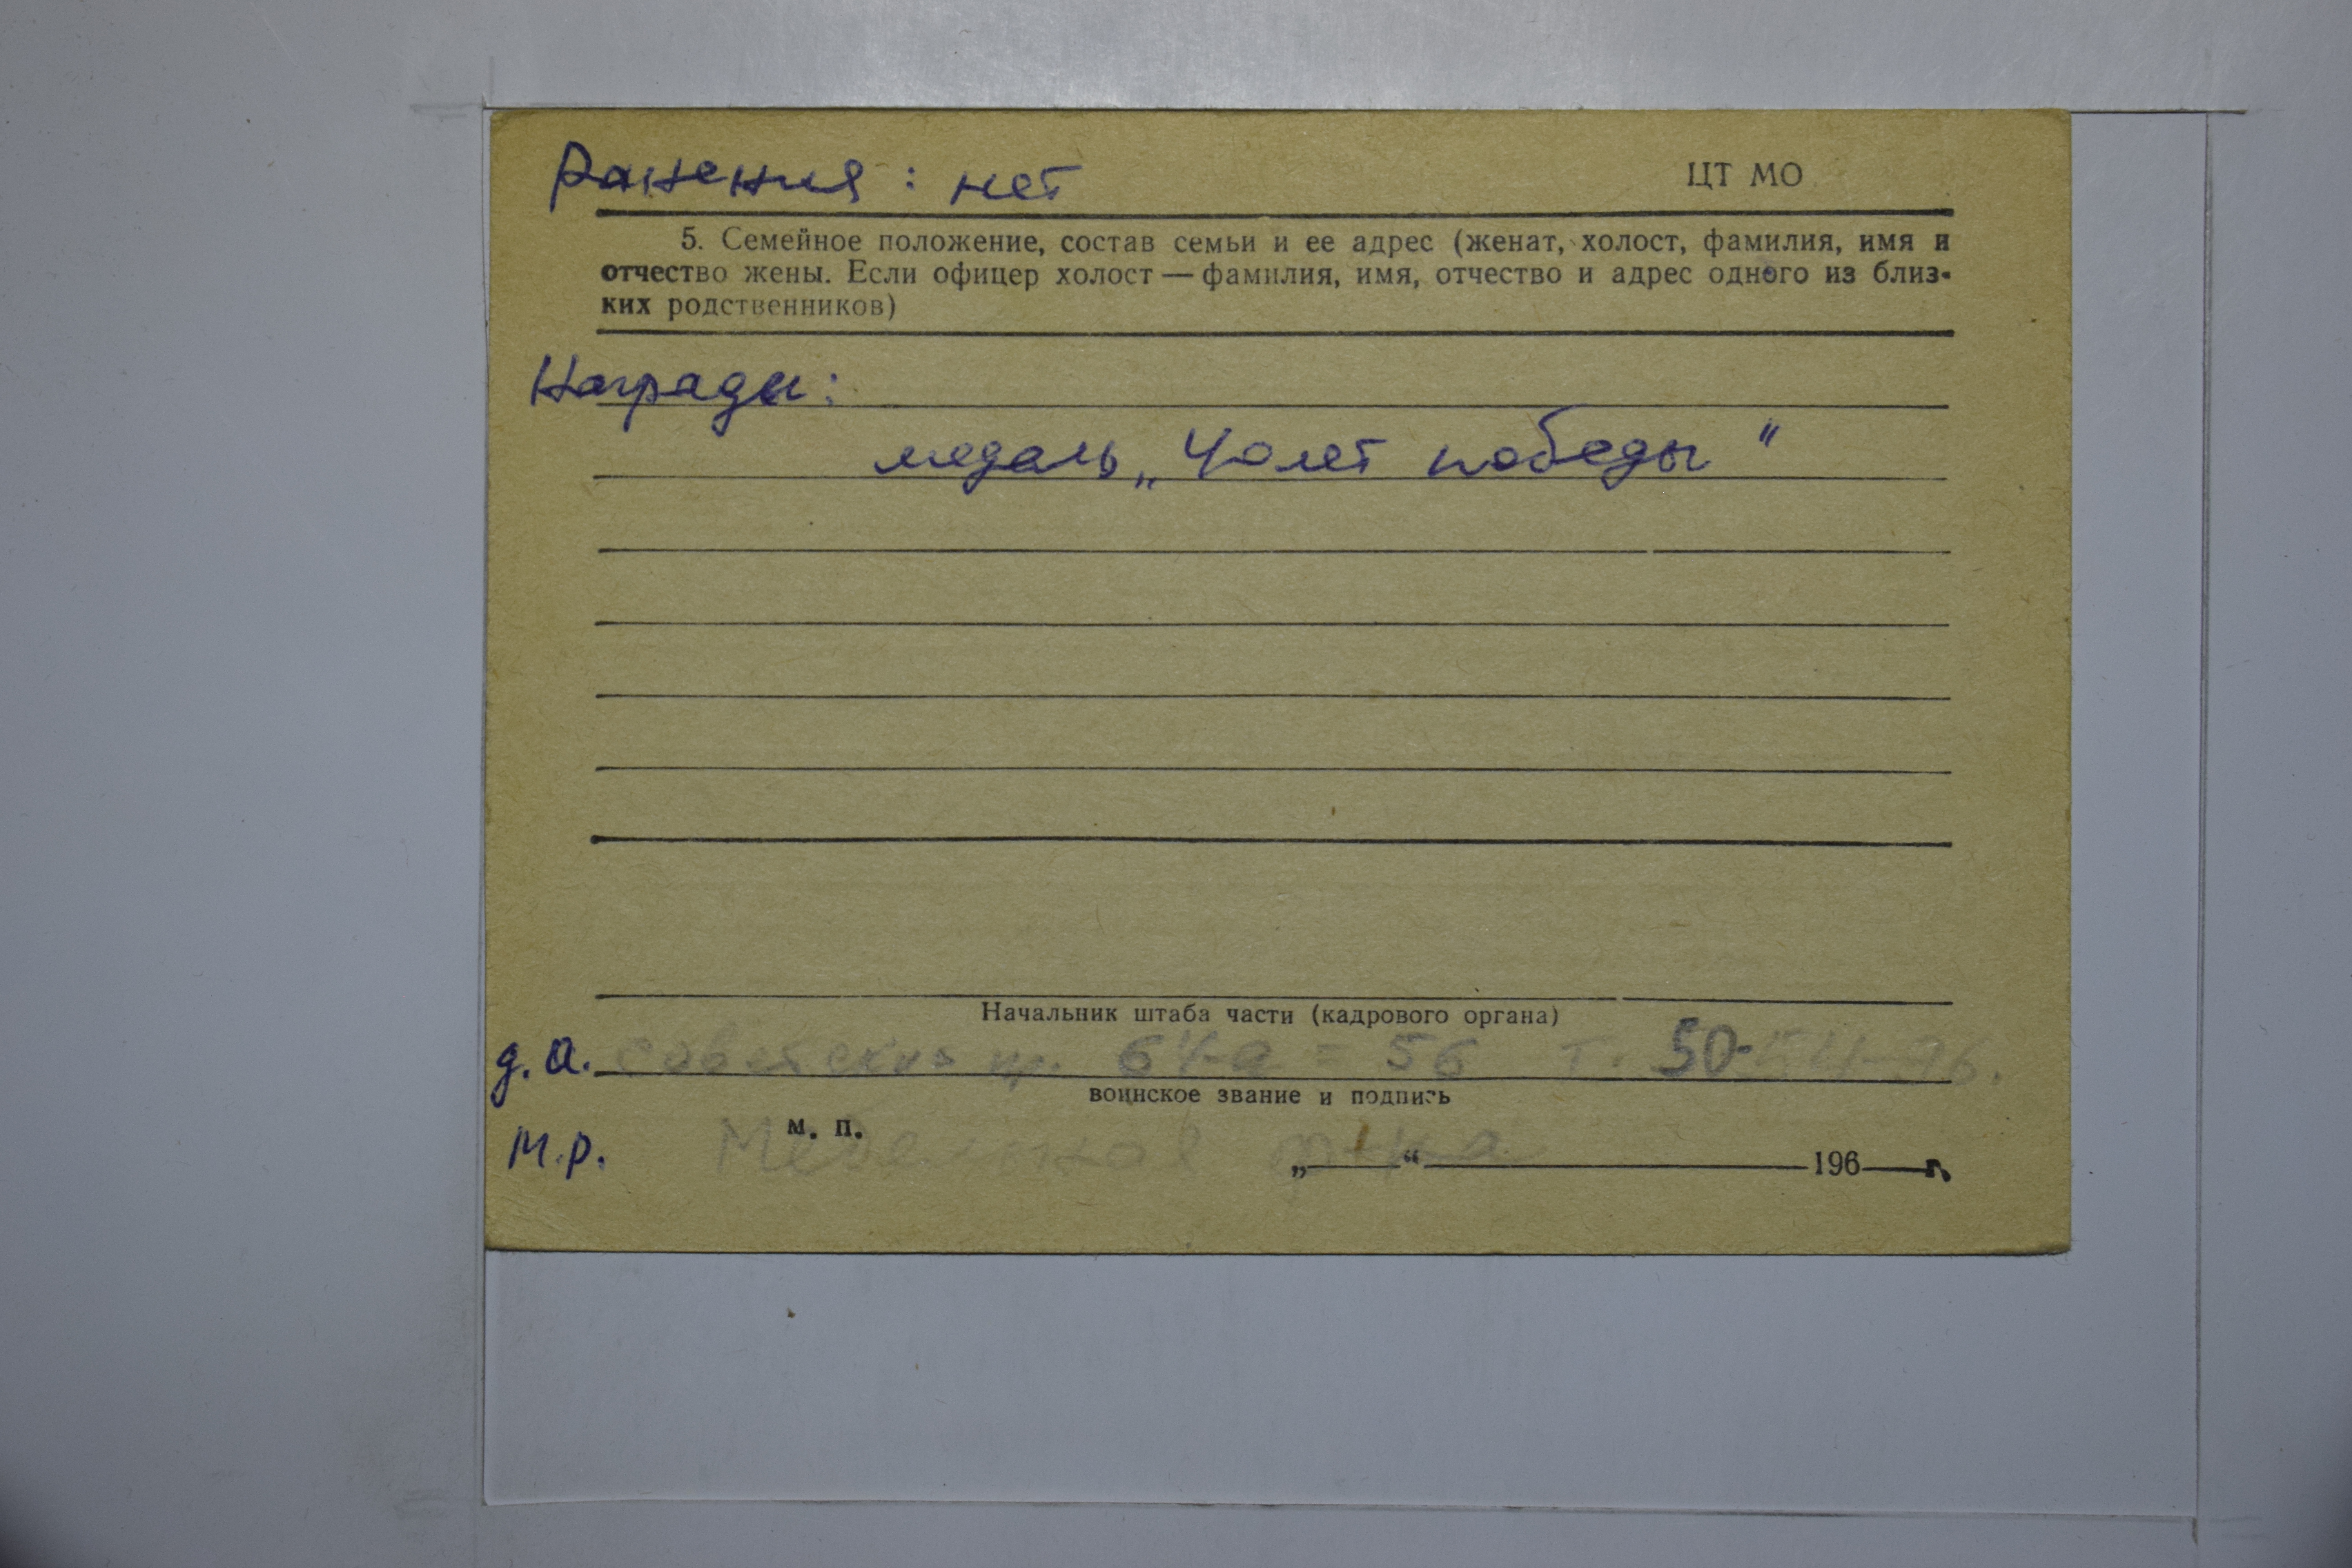 Ранения: нет
ЦТ МО
5. Семейное положение, состав семьи и ее адрес (женат, холост, фамилия, имя и
отчество жены. Если офицер холост — фамилия, имя, отчество и адрес одного из близ-
ких родственников)
Награды:
медаль „40 лет победы"
Начальник штаба части (кадрового органа)
д.а. 64-а = 56 т. 50-54-76.
воинское звание и подпись
м. п.
М.р.
„ “ 196 г.